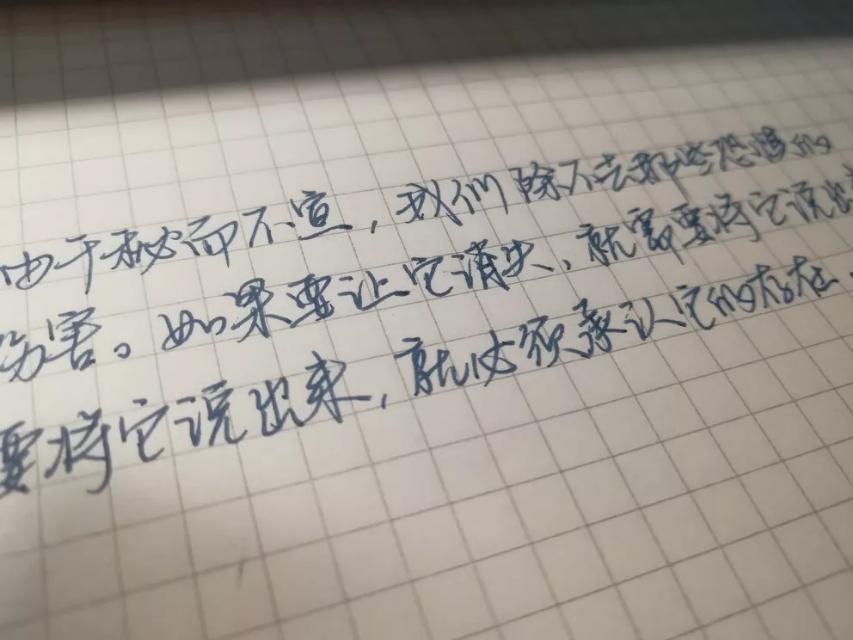 由于秘而不宣，我们除不去那些恐惧的
伤害。如果要让它消失，就需要将它说出
要将它说出来，就必须承认它的存在，